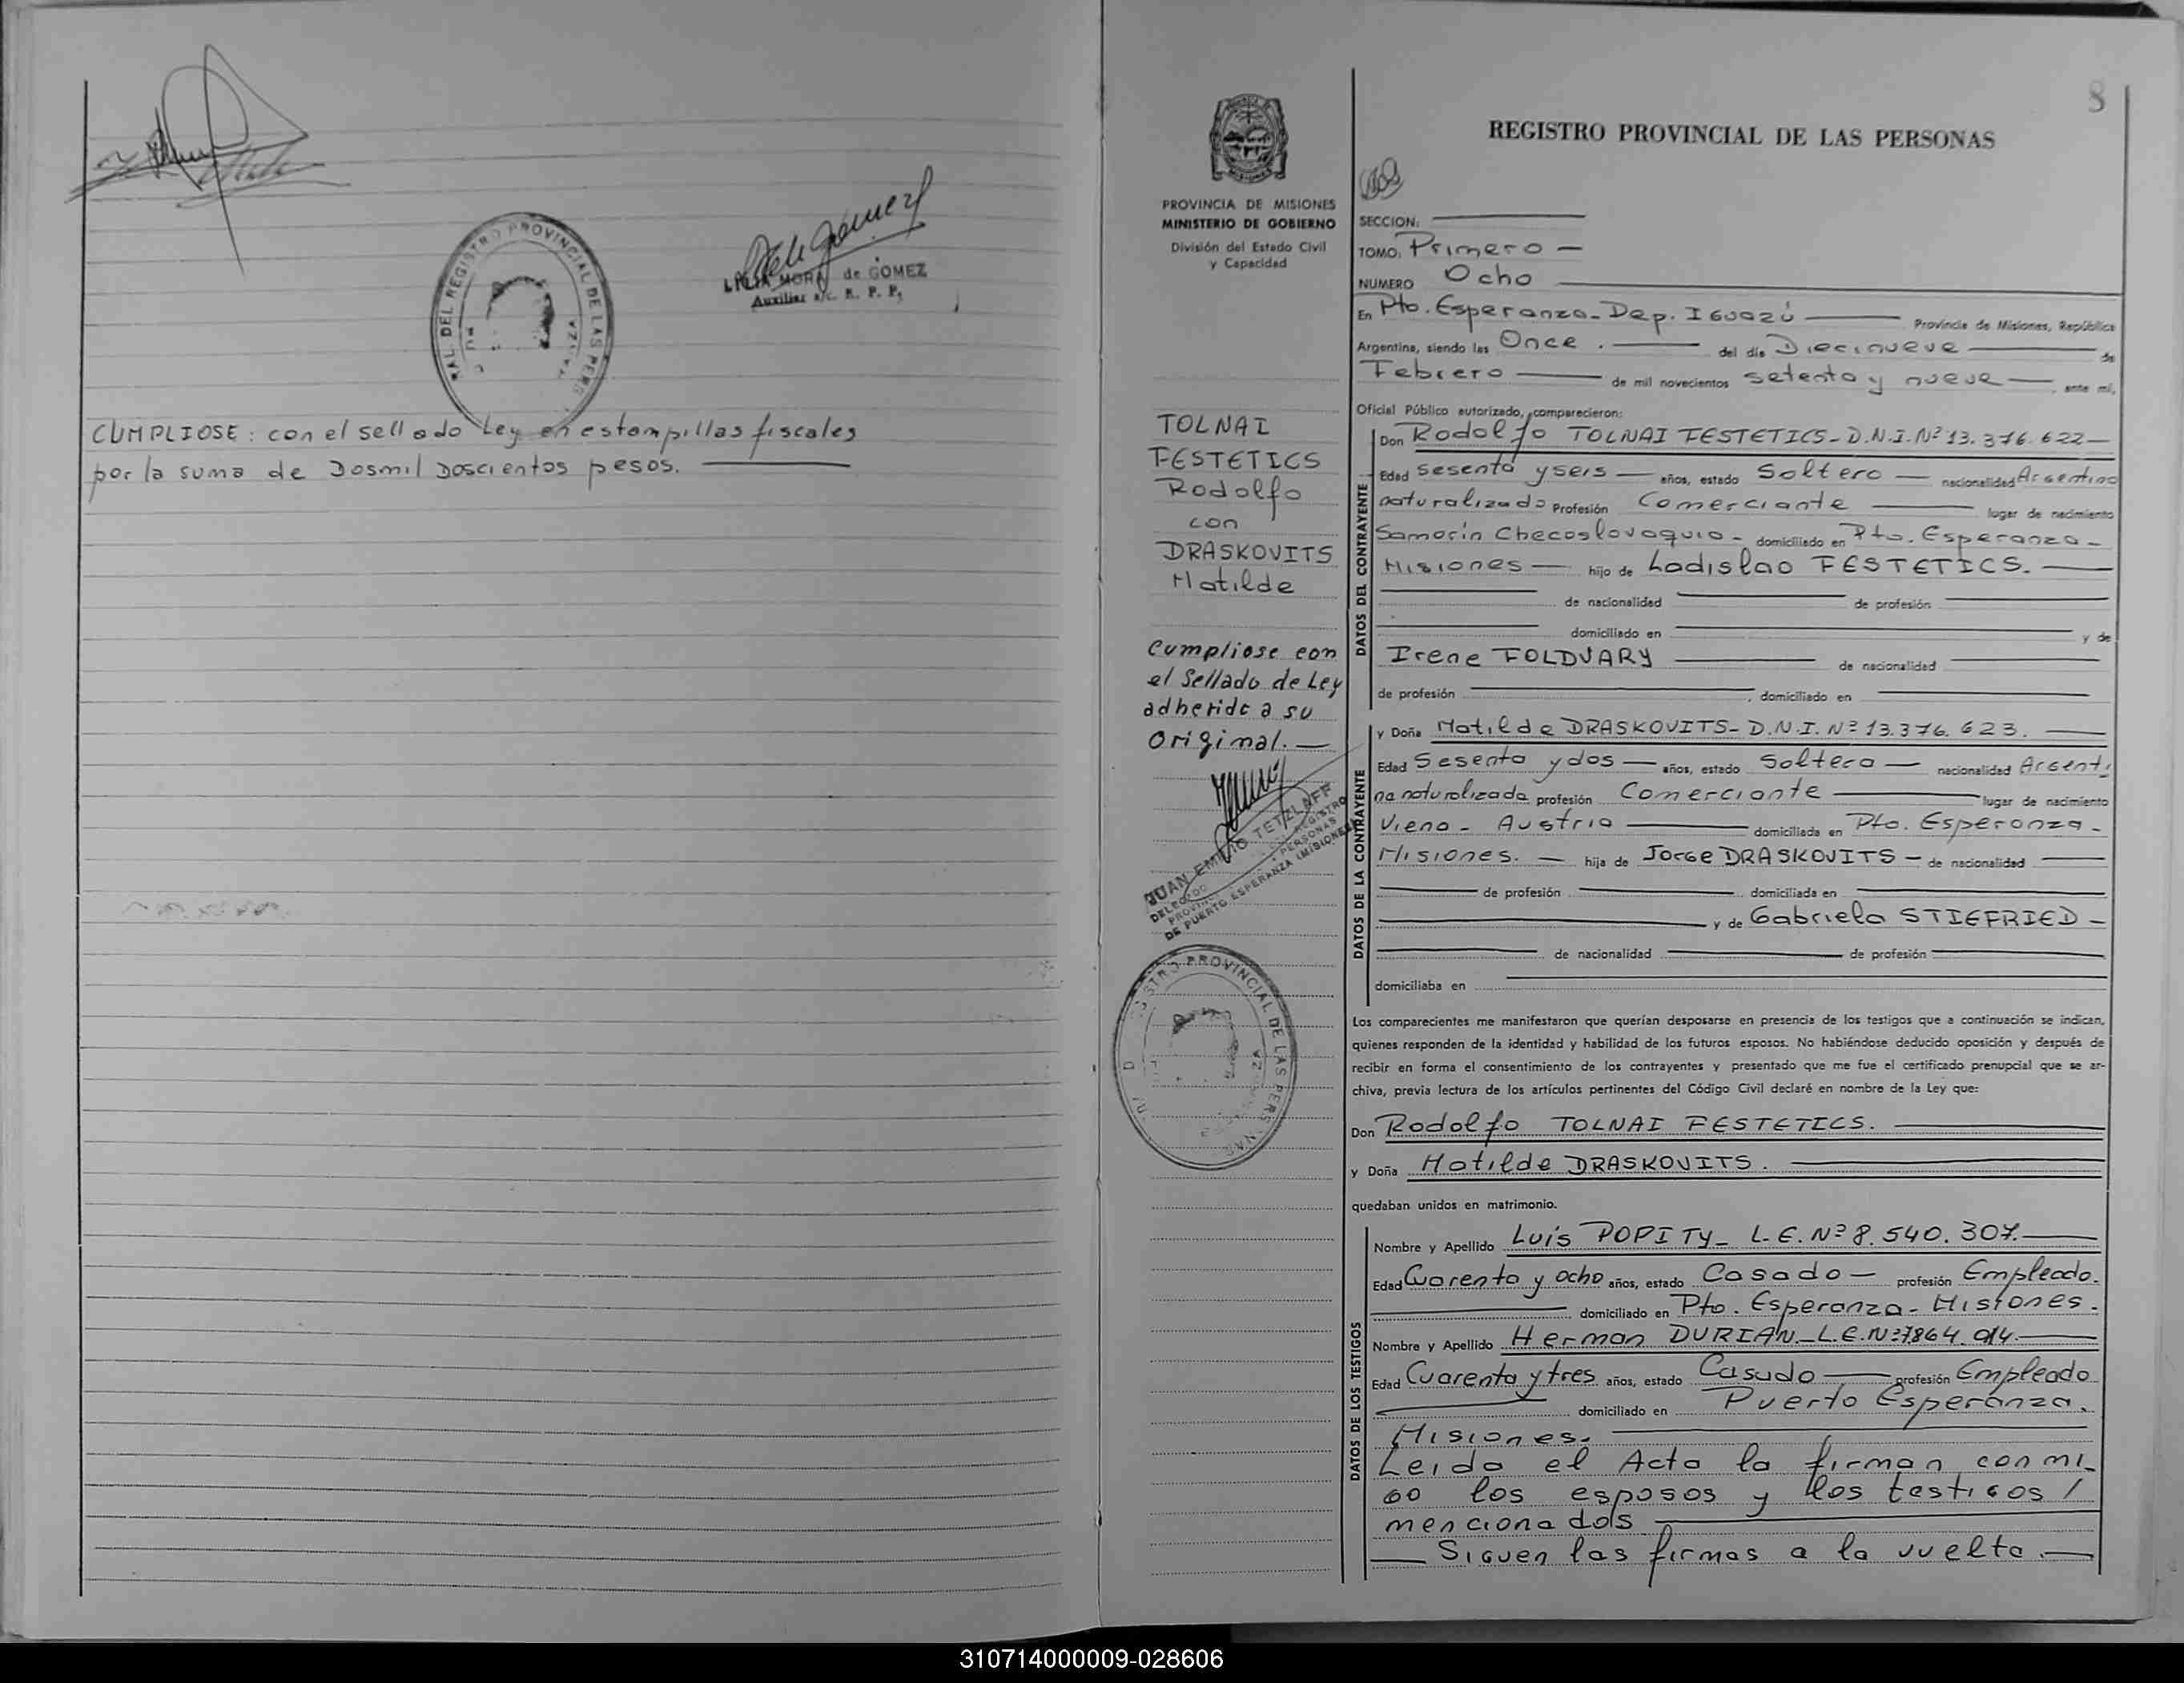 LILIA MORA de GOMEZ
Auxiliar a/c. R. P. P.
CUMPLIOSE: con el sellado Ley en estampillas fiscales
por la suma de Dosmil Doscientos pesos.
8
REGISTRO PROVINCIAL DE LAS PERSONAS
PROVINCIA DE MISIONES
MINISTERIO DE GOBIERNO
División del Estado Civil
y Capacidad
SECCION:
TOMO: Primero
NUMERO Ocho
En Pto. Esperanza - Dep. IGUAZÚ Provincia de Misiones, República
Argentina, siendo las Once . del día Diecinueve de
Febrero de mil novecientos setenta y nueve , ante mí,
Oficial Público autorizado, comparecieron:
TOLNAI
FESTETICS
Rodolfo
con
DRASKOVITS
Matilde
Cumpliose con
el Sellado de Ley
adherido a su
original.
JUAN EMILIO TETZLAFF
DE PUERTO ESPERANZA (MISIONES)
DATOS DEL CONTRAYENTE
Don Rodolfo TOLNAI FESTETICS - D.N.I. Nº 13.376.622
Edad sesenta y seis años, estado Soltero nacionalidad Argentino
naturalizado Profesión Comerciante lugar de nacimiento
Samorín Checoslovaquia - domiciliado en Pto. Esperanza -
Misiones hijo de Ladislao FESTETICS.
de nacionalidad de profesión
domiciliado en y de
Irene FOLDVARY de nacionalidad
de profesión , domiciliado en
DATOS DE LA CONTRAYENTE
y Doña Matilde DRASKOVITS - D.N.I. Nº 13.376.623.
Edad Sesenta y dos años, estado Soltera nacionalidad Argenti
na naturalizada profesión Comerciante lugar de nacimiento
Viena - Austria domiciliada en Pto. Esperanza -
Misiones. hija de Jorge DRASKOVITS - de nacionalidad
de profesión domiciliada en
y de Gabriela STIEFRIED -
de nacionalidad de profesión
domiciliaba en
Los comparecientes me manifestaron que querían desposarse en presencia de los testigos que a continuación se indican,
quienes responden de la identidad y habilidad de los futuros esposos. No habiéndose deducido oposición y después de
recibir en forma el consentimiento de los contrayentes y presentado que me fue el certificado prenupcial que se ar-
chiva, previa lectura de los artículos pertinentes del Código Civil declaré en nombre de la Ley que:
Don Rodolfo TOLNAI FESTETICS.
y Doña Matilde DRASKOVITS.
quedaban unidos en matrimonio.
DATOS DE LOS TESTIGOS
Nombre y Apellido Luis POPITY - L.E. Nº 8.540.307.
Edad Cuarenta y ocho años, estado Casado - profesión Empleado.
domiciliado en Pto. Esperanza - Misiones.
Nombre y Apellido Herman DURIAN - L.E. Nº 7864.014.
Edad Cuarenta y tres años, estado Casado profesión Empleado
domiciliado en Puerto Esperanza.
Misiones.
Leida el Acta la firman conmi-
go los esposos y los testigos /
mencionados
Siguen las firmas a la vuelta.
310714000009-028606